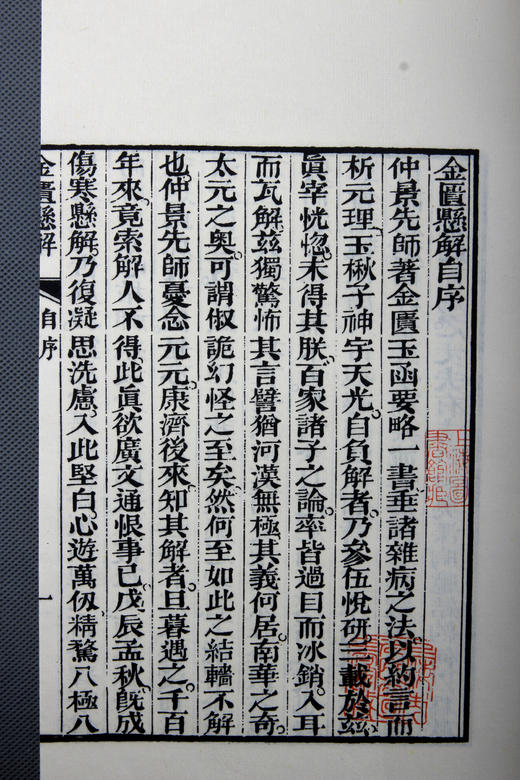 金匱懸解自序
仲景先師著金匱玉函要略一書垂諸雜病之法以約言而
析元理玉楸子神宇天光自負解者乃參伍悅研三載於茲
眞宰恍惚未得其朕百家諸子之論率皆過目而冰銷入耳
而瓦解茲獨驚怖其言譬猶河漢無極其義何居南華之奇
太元之奧可謂俶詭幻怪之至矣然何至如此之結轖不解
也仲景先師憂念元元康濟後來知其解者旦暮遇之千百
年來竟索解人不得此眞欲廣文通恨事已戊辰孟秋旣成
傷寒懸解乃復凝思洗慮入此堅白心遊萬仭精騖八極八
金匱懸解 自序 一